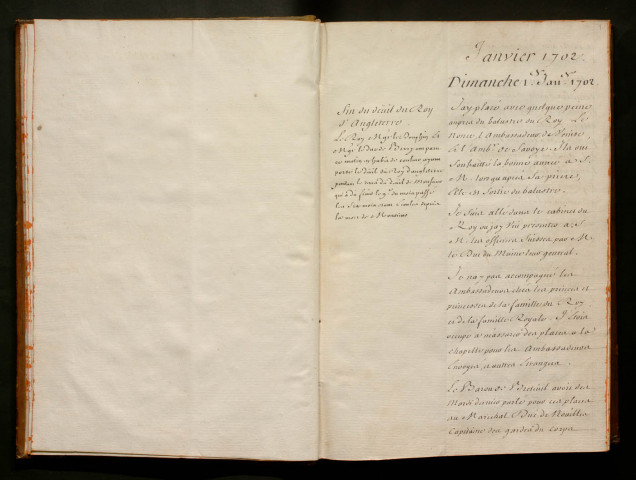 Janvier 1702.
Dimanche 1.er Janv.r 1702.
Fin du deüil du Roy
d'Angleterre.
Le Roy, Mgr le Dauphin, et
Mgr le Duc de Berry, ont paru
ce matin en habit de couleur ayant
porté le deüil du Roy d'angleterre
pendant le reste du deüil de Monsieur
qui a du finir le 9.e du mois passé
les six mois étant écoulez depuis
la mort de Monsieur
J'ay placé avec quelque peine
auprés du balustre du Roy Le
Nonce, l'Ambassadeur de Venise
et l'Amb.r de Savoye. Ils ont
souhaitté la bonne année à S.
M. lors qu'aprés sa priére,
Elle est sortie du balustre.
Je suis allé dans le cabinet du
Roy ou j'ay vû presenter à S.
M. les officiers Suisses par M.
le Duc du Maine leur general.
Je n'ay pas accompagné les
Ambassadeurs chés les princes et
princesses de la famille du Roy
et de la famille Royale. J'étois
occupé à m'assurer des places à la
chapelle pour les Ambassadeurs
Envoyés, et autres Etrangers.
Le Baron de Breteüil avoit dés
Mardi dernier parlé pour ces places
au Maréchal Duc de Noailles
Capitaine des gardes du corps